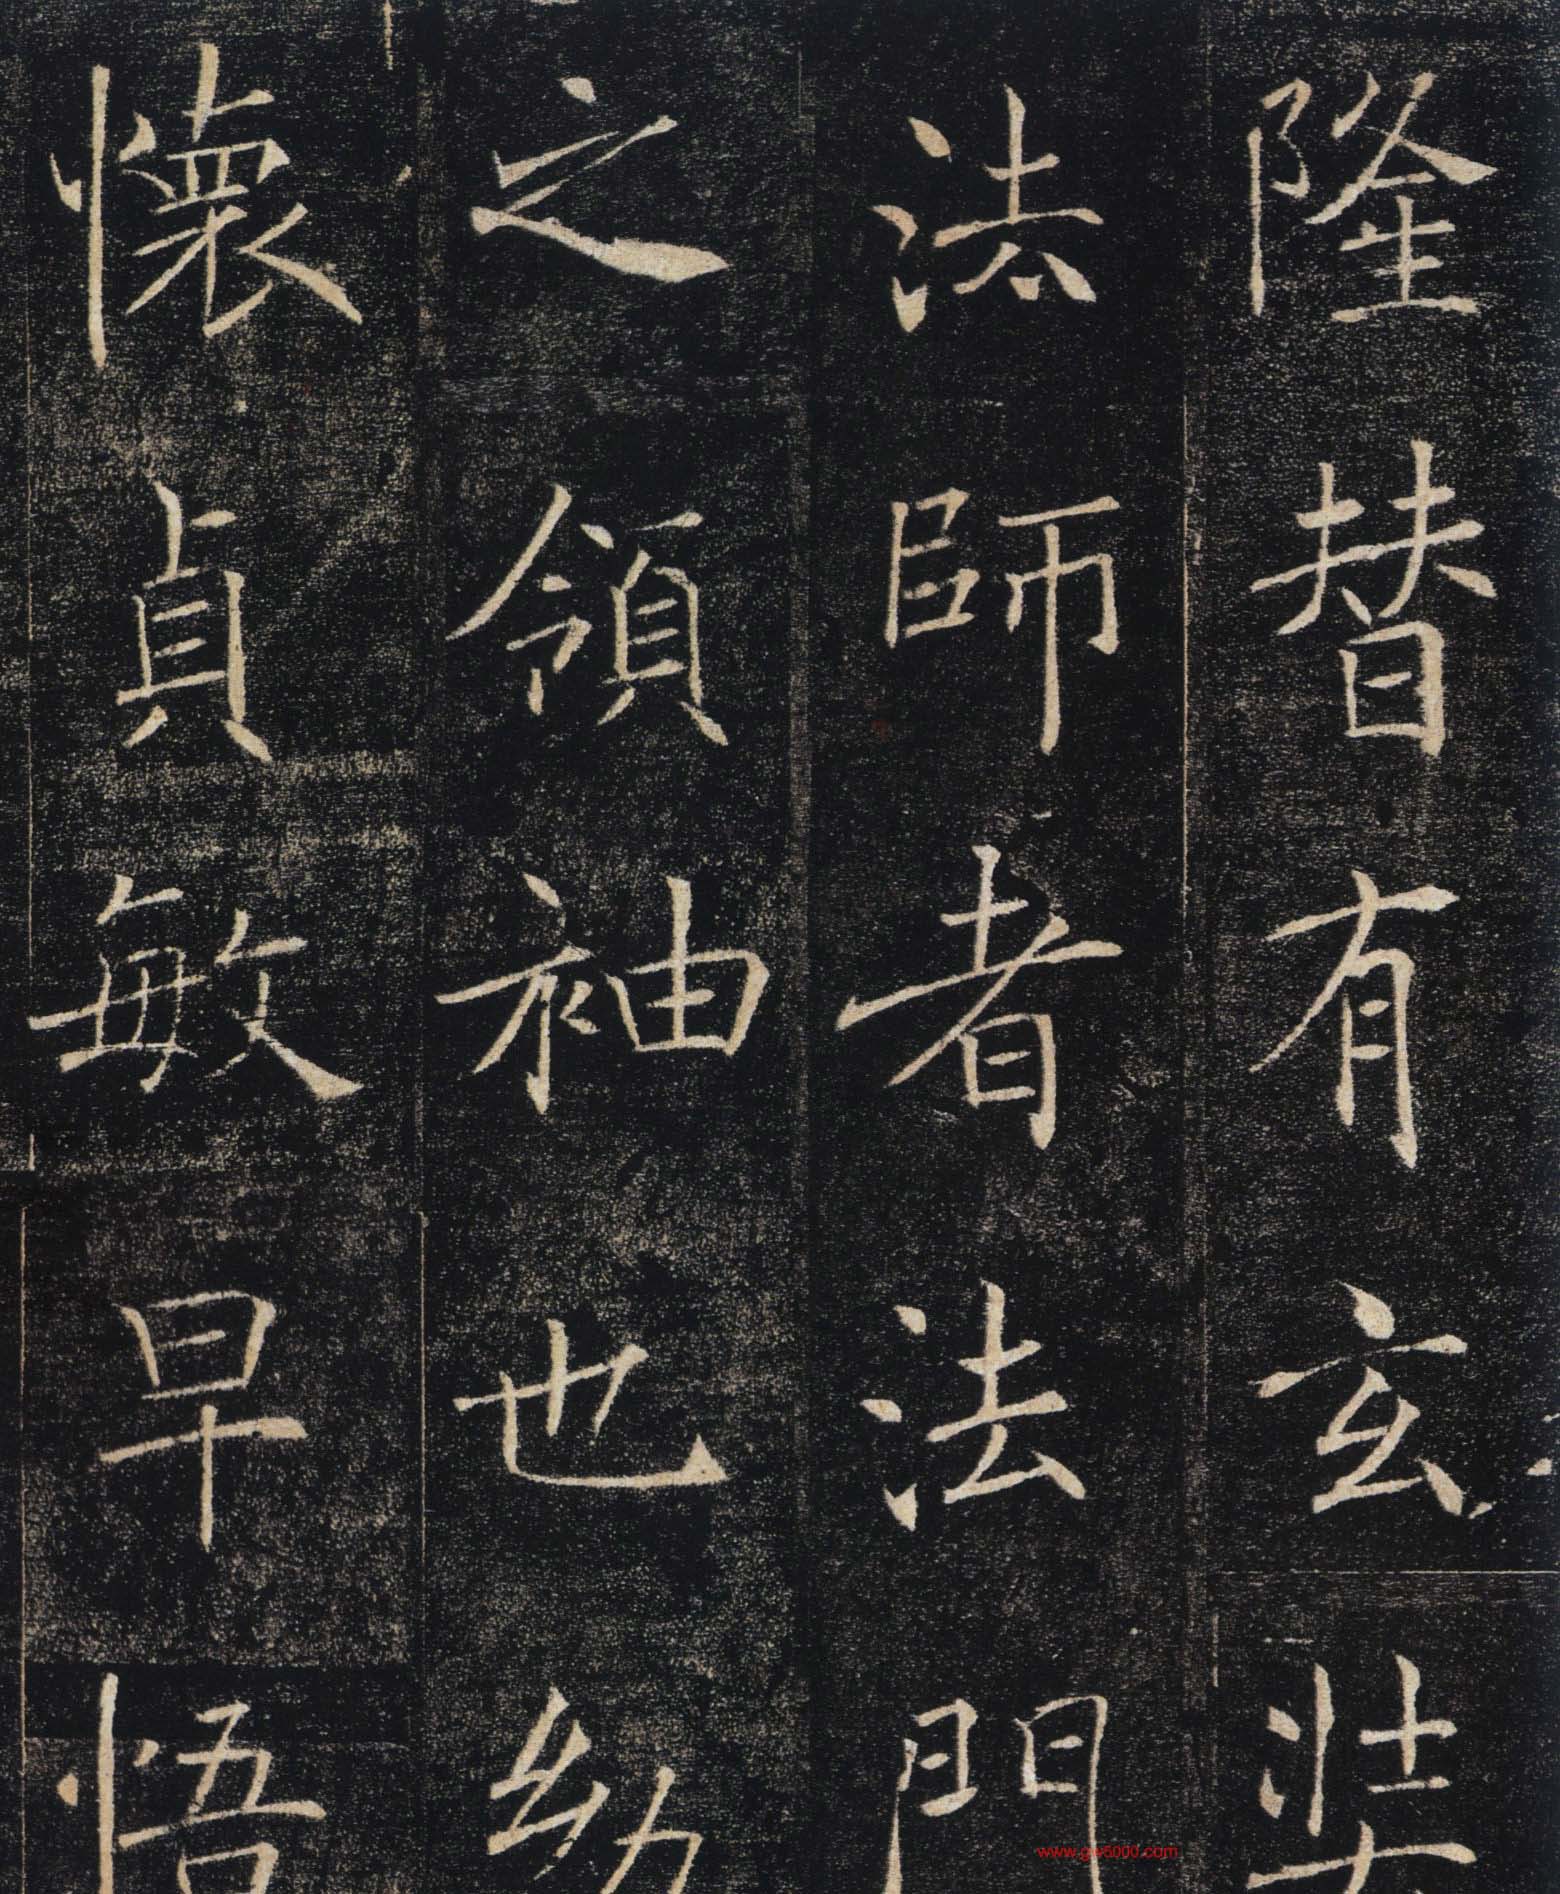 隆替有玄奘
法師者法門
之領袖也幼
懷貞敏早悟
www.gw5000.com